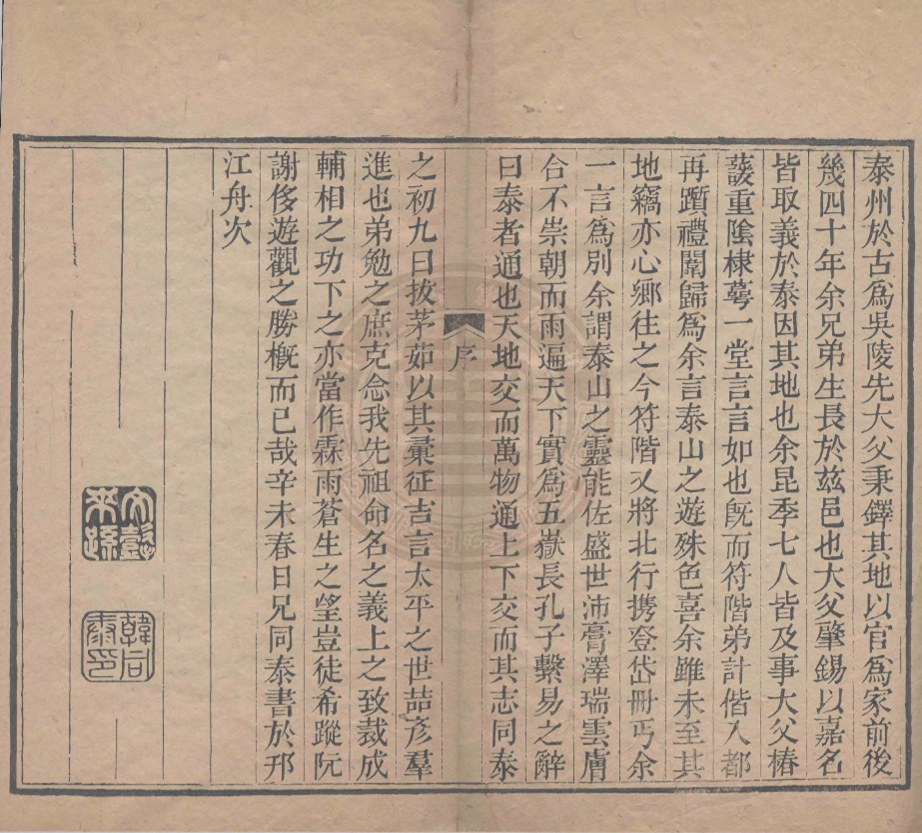 泰州於古爲吳陵先大父秉鐸其地以官爲家前後
幾四十年余兄弟生長於茲邑也大父肇錫以嘉名
皆取義於泰因其地也余昆季七人皆及事大父椿
蔭重陰棣萼一堂言言如也旣而符階弟計偕入都
再躓禮闈歸爲余言泰山之遊殊色喜余雖未至其
地竊亦心鄉往之今符階又將北行携登岱冊丐余
一言爲別余謂泰山之靈能佐盛世沛膏澤瑞雲膚
合不崇朝而雨遍天下實爲五嶽長孔子繫易之辭
曰泰者通也天地交而萬物通上下交而其志同泰
序
之初九曰拔茅茹以其彙征吉言太平之世喆彦羣
進也弟勉之庶克念我先祖命名之義上之致裁成
輔相之功下之亦當作霖雨蒼生之望豈徒希蹤阮
謝侈遊觀之勝槪而已哉辛未春日兄同泰書於邗
江舟次
韓同泰印